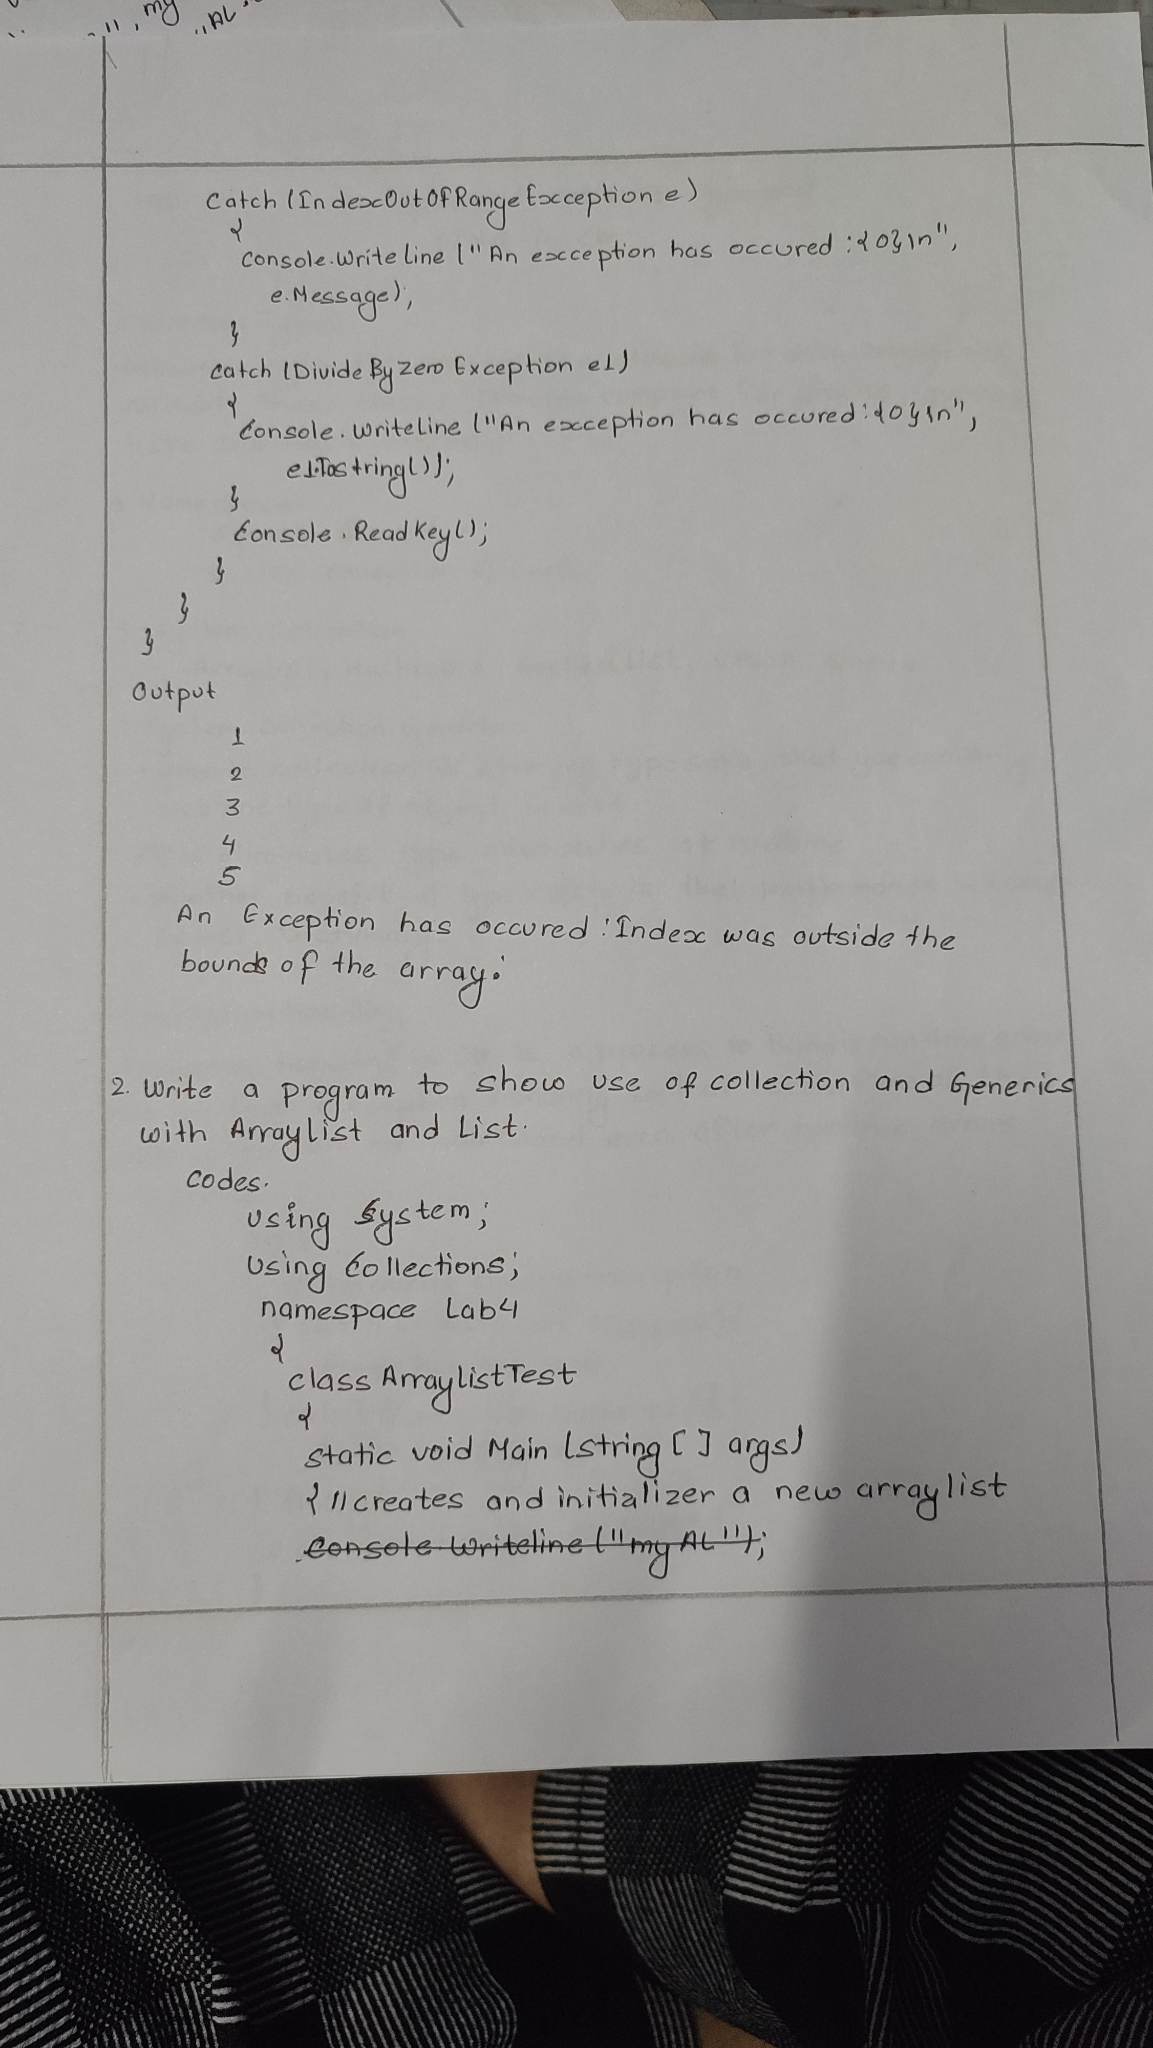 ", my
"AL
Catch (IndexOutOfRange Exception e)
{
Console.Write line ("An exception has occured :{0}\n",
e.Message);
}
catch (Divide By Zero Exception e1)
{
Console.writeline ("An exception has occured:{0}\n",
e1.Tostring());
}
Console.Read Key();
}
}
}
Output
1
2
3
4
5
An Exception has occured : Index was outside the
bounds of the array.
2. Write a program to show use of collection and Generics
with Arraylist and List.
codes.
using System;
Using Collections;
namespace Lab4
{
class ArraylistTest
{
static void Main (string [ ] args)
{ //creates and initializer a new arraylist
Console.writeline ("my AL");